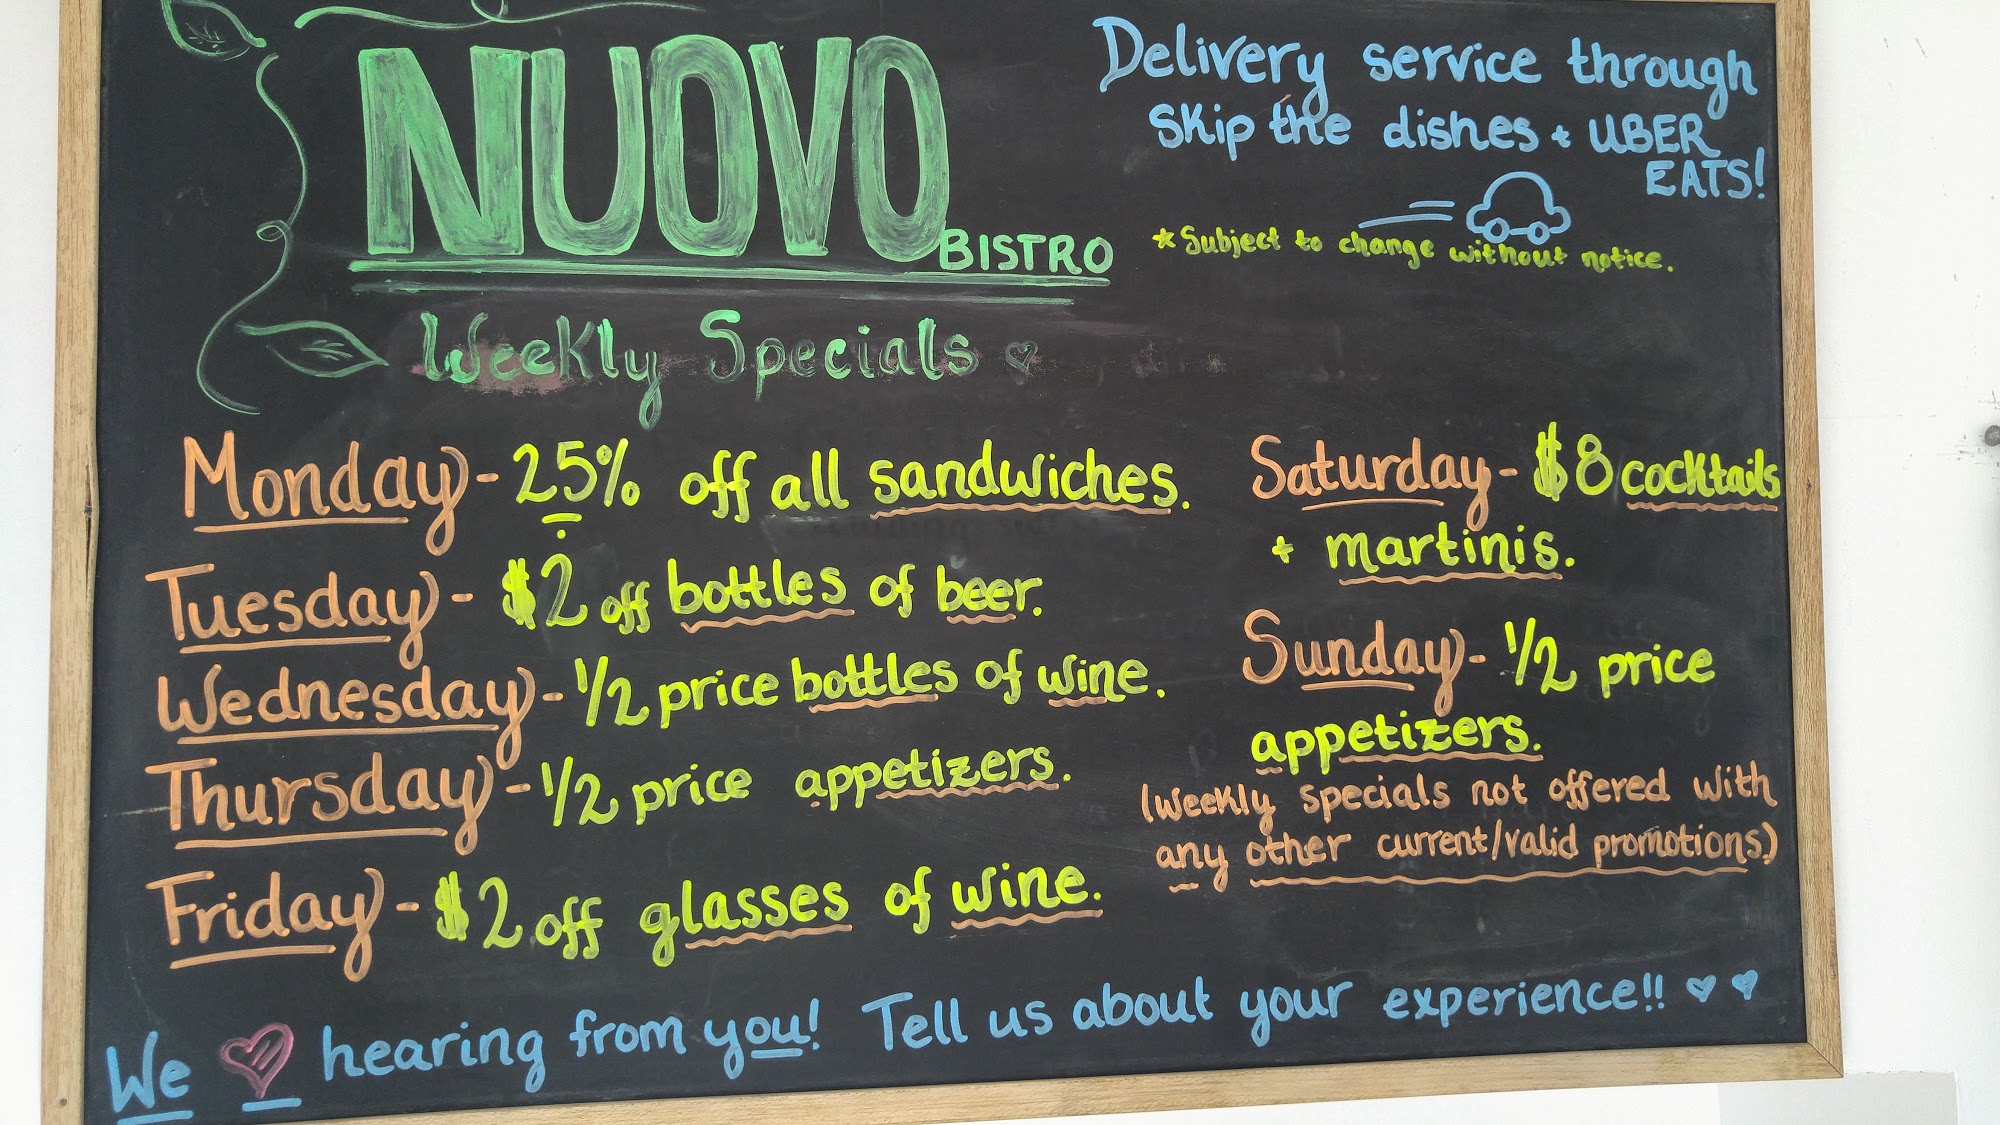 NUOVO
BISTRO
Weekly Specials
Delivery service through
Skip the dishes + UBER
EATS!
*Subject to change without notice.
Monday - 25% off all sandwiches.
Tuesday - $2 off bottles of beer.
Wednesday - 1/2 price bottles of wine.
Thursday - 1/2 price appetizers.
Friday - $2 off glasses of wine.
Saturday - $8 cocktails
+ martinis.
Sunday - 1/2 price
appetizers.
(Weekly specials not offered with
any other current/valid promotions)
We ♡ hearing from you! Tell us about your experience!! ♡ ♡